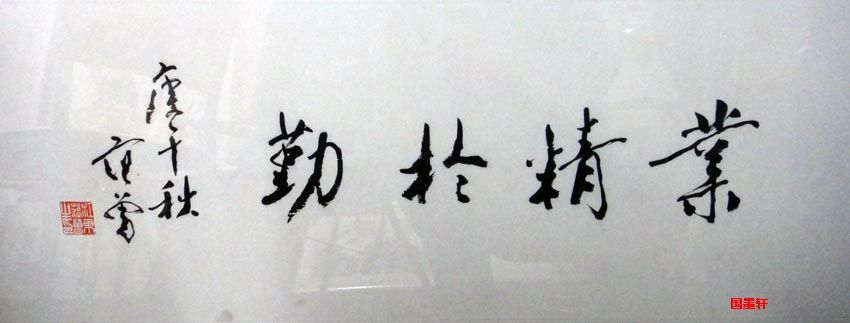 業精於勤
庚午秋
范曾
国墨轩